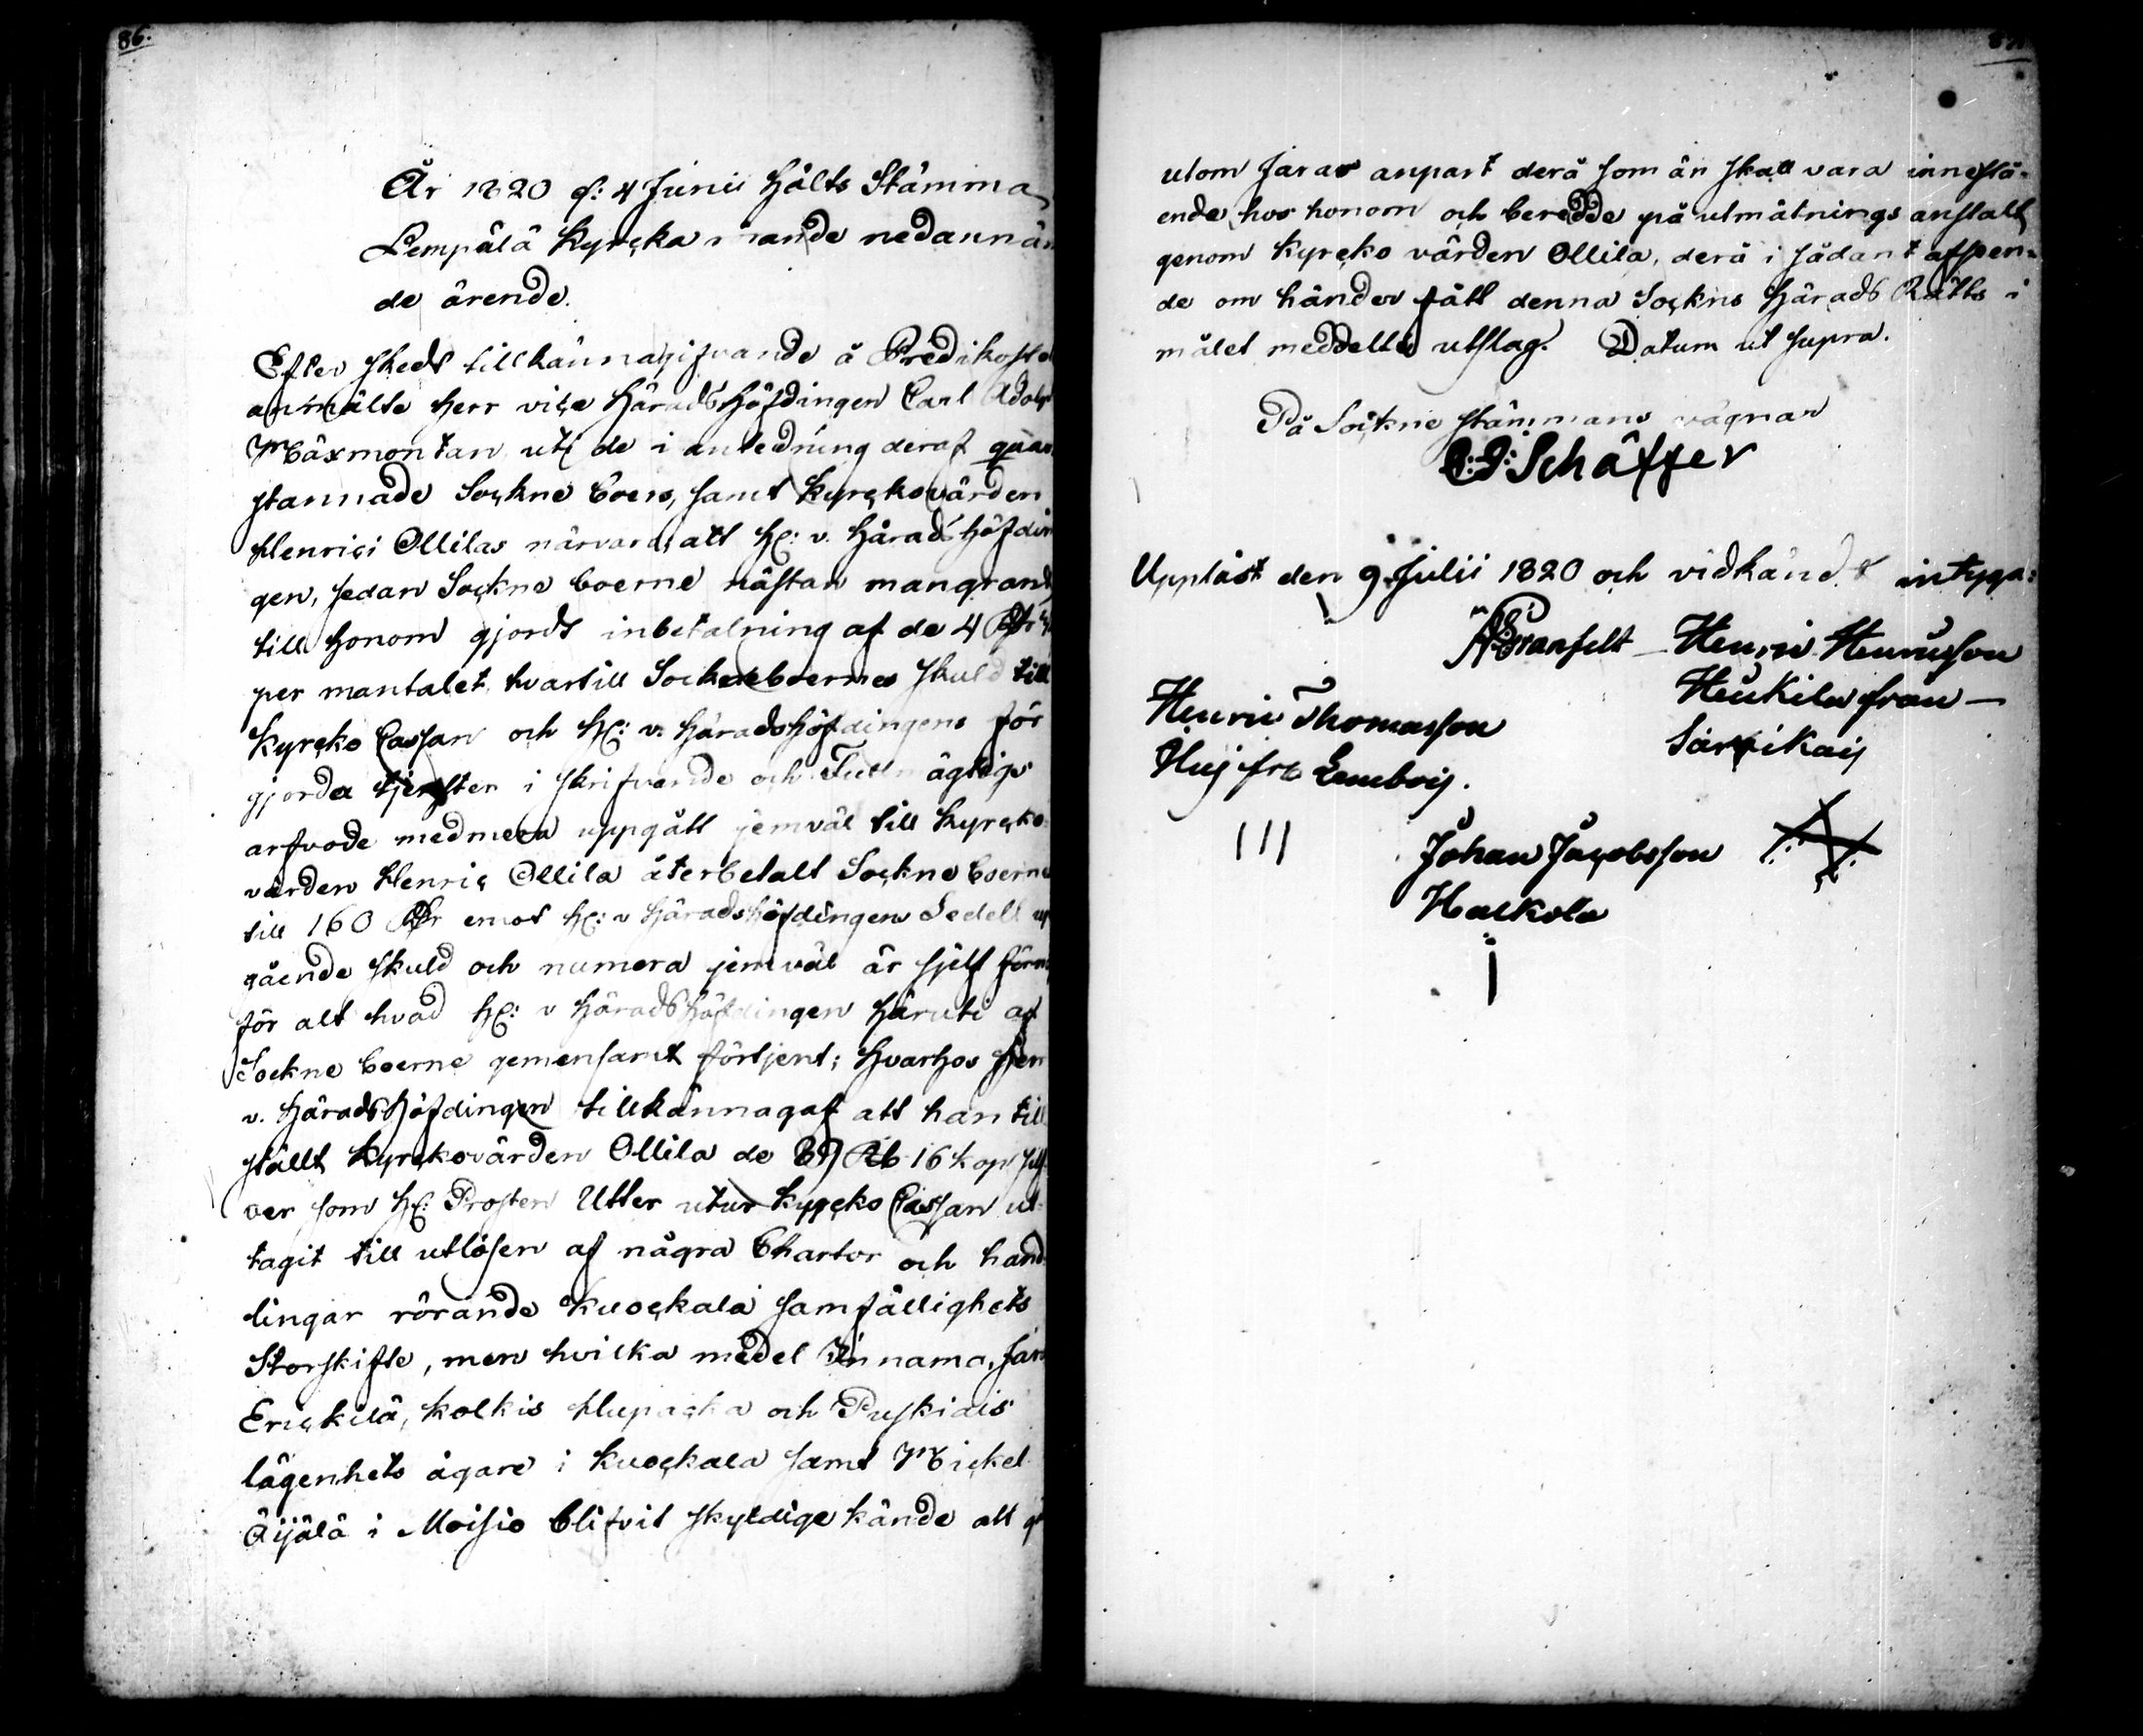 86.
År 1820 d: 4 Junii hölts Stämma
Lempälä Kyrcka rörande nedannäm
de ärende.
Efter skedt tillkännagifvande å Predikostol
anmälte Herr vice Häradshöfdingen Carl Adolp
Mäxmontan uti de i anledning deraf qvar
stannade Sockne boers, samt Kyrckovärden
Henrici Ollilas närvaro, att Hr: v. Häradshöfdin
gen, sedan Sockne boerne nästan mangrant
till honom gjordt inbetalning af de 4 Rdr
per mantalet hvartill Sockneboernes skuld till
Kyrcko Cassan och Hr: v. Häradshöfdingens för
gjorda tjenster i skrifvande och Fullmägtigs
arfvode medmera uppgått jemväl till Kyrcko
värden Henric Ollila återbetalt Sockne boerne
till 160 Rdr emot Hr: v Häradshöfdingens Sedell up
gående skuld och numera jemväl är sjelf förnö
för alt hvad Hr: v Häradshöfdingen häruti af
Sockne boerne gemensamt förtjent; hvarhos Herr
v. Häradshöfdingen tillkännagaf att han till
ställt Kyrckovärden Ollila de Rub 16 kop Silf
ver som Hr: Prosten Utter utur Kyrcko Cassan ut-
tagit till utlösen af några Chartor och hand
lingar rörande Kuockala samfällighets
Storskifte, men hvilka medel Innama, Jara
Erickilä, Kolkis Hupacka och Puskiais
lägenhets ägare i Kuockala samt Mickel
Äijälä i Moisio blifvit skyldige kände att
utom Jaras anpart derå som än skall vara innestå-
ende hos honom och beredde på utmätnings anstalt
genom Kyrcko värden Ollila, derå i sådant afseen-
de om händer fått denna Sockns Härads Rätts i
målet meddelte utslag. Datum ut supra.
På Sockne stämmans vägnar
C: J: Schäffer
Uppläst den 9 Julii 1820 och vidkändt intyga:
Granfelt Henric Henricsson
Heikilä från
Särkikaij
Henric Thomasson
Huj frå Lemboij.
Johan Jacobsson
Halkola